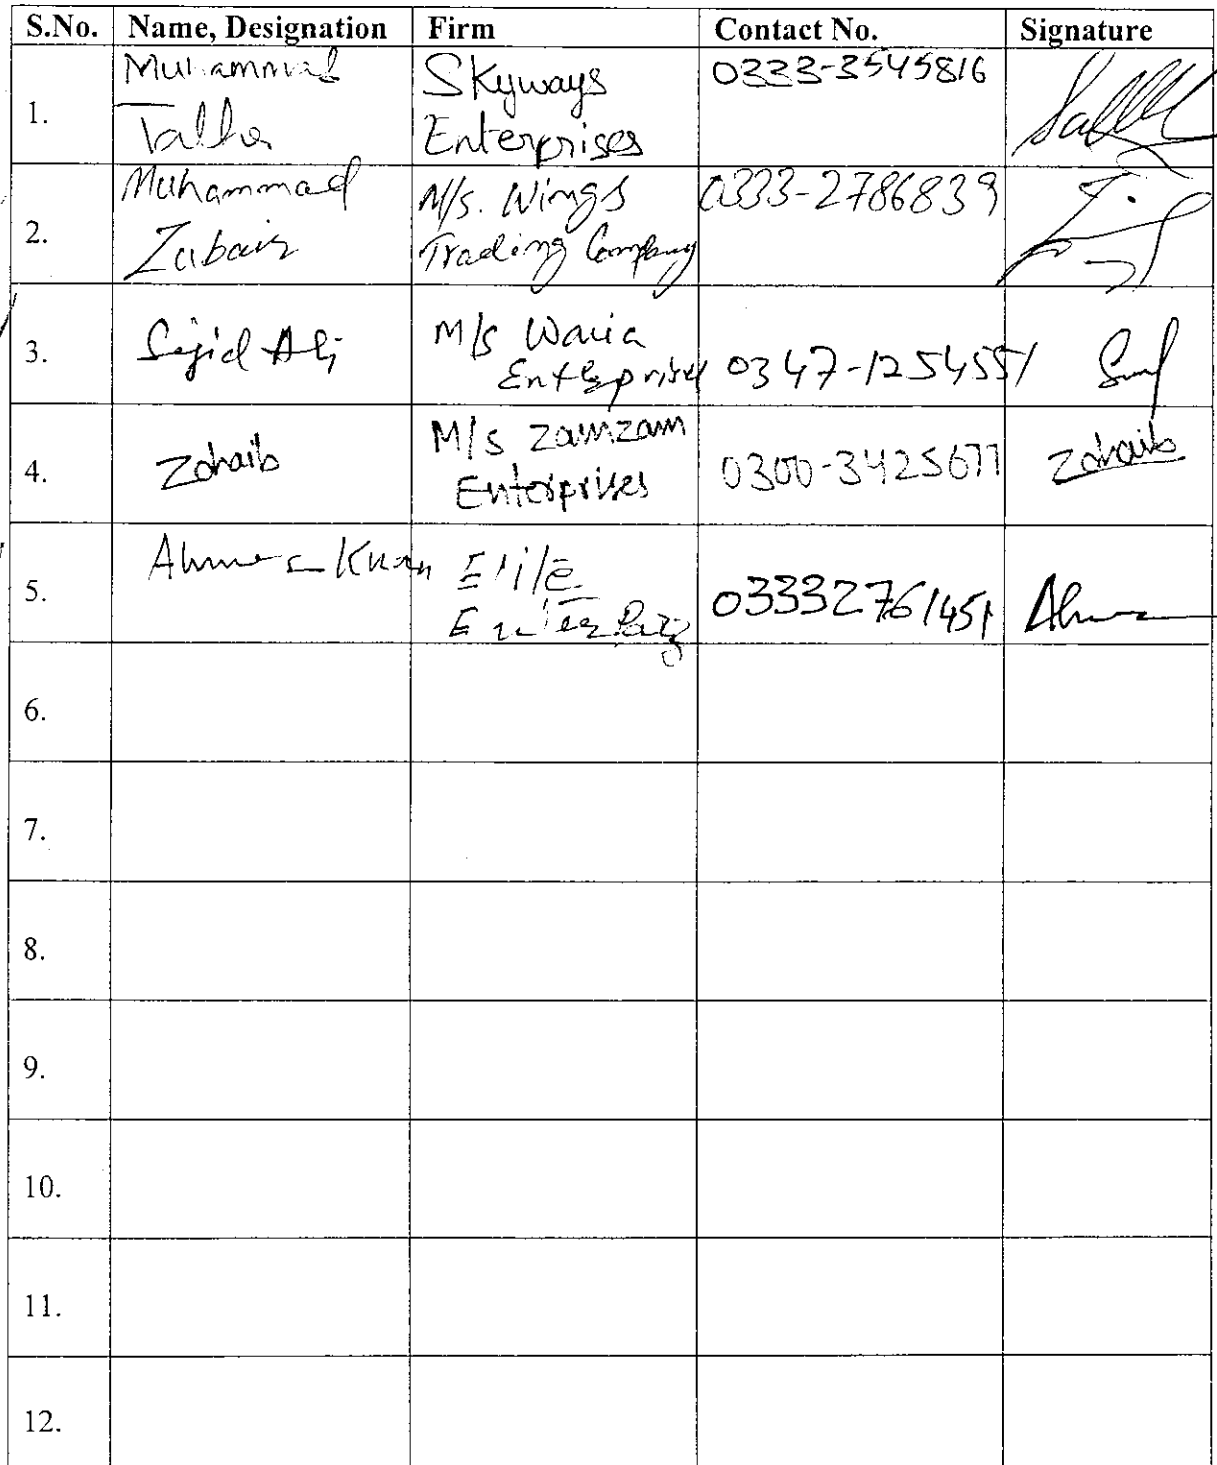 S.No. Name, Designation Firm Contact No. Signature
1. Muhammad Talha Skyways Enterprises 0333-3545816
2. Muhammad Zubair M/s. Wings Trading Company 0333-2786839
3. Sajid Ali M/s Waria Enterprises 0347-1254551
4. Zohaib M/s Zamzam Enterprises 0300-3425677 Zohaib
5. Khan Elite 03332761451
6.
7.
8.
9.
10.
11.
12.